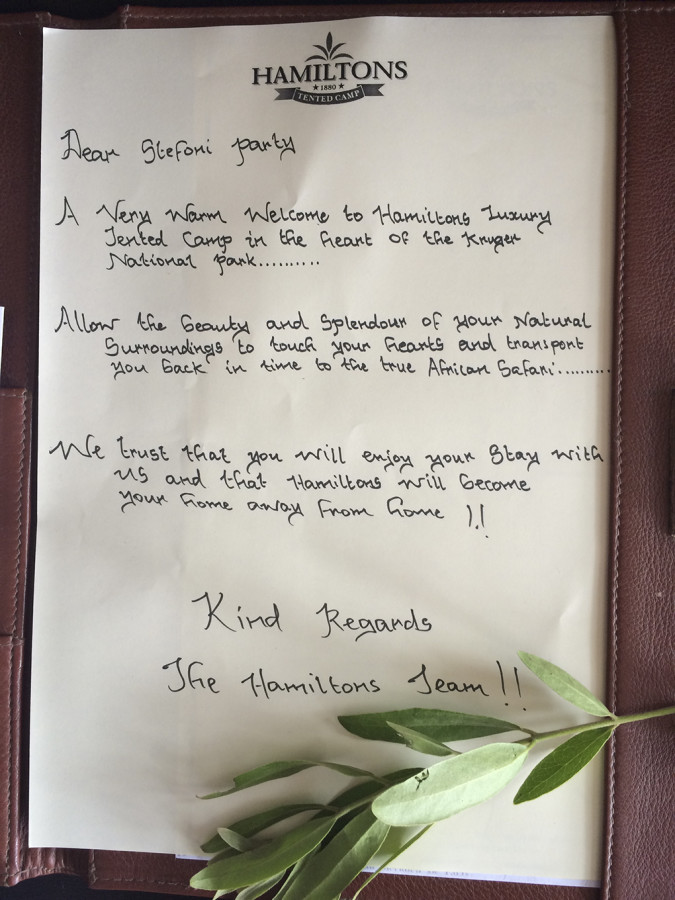 HAMILTONS
★ 1880 ★
TENTED CAMP
Dear Stefani party
A Very Warm Welcome to Hamiltons Luxury
Tented Camp in the heart of the Kruger
National park..........
Allow the beauty and Splendour of your Natural
Surroundings to touch your hearts and transport
you back in time to the true African Safari..........
We trust that you will enjoy your Stay with
us and that Hamiltons will become
your home away from home !!
Kind Regards
The Hamiltons Team!!